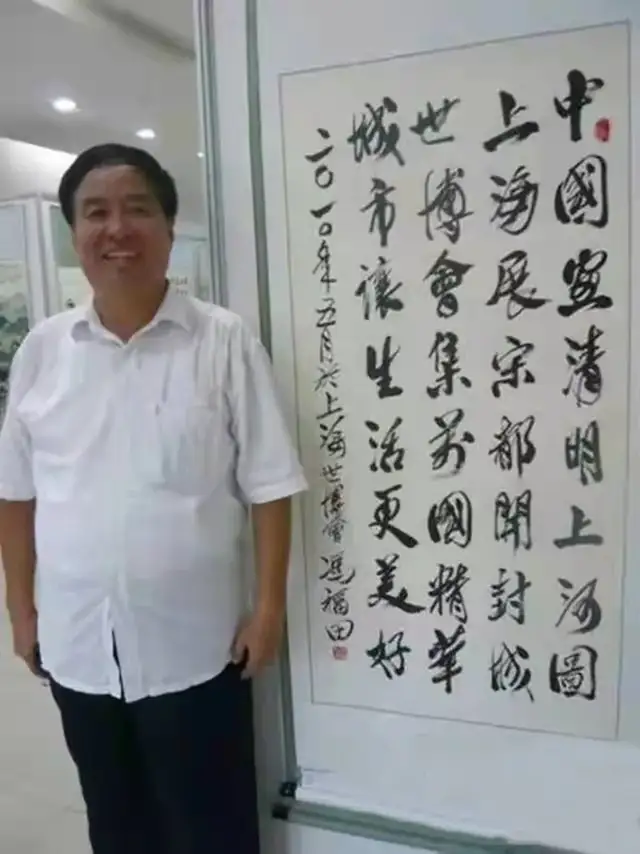 中國清明上河圖
上海展宋都開封城
世博會集萬國精華
城市讓生活更美好
二〇一〇年五月於上海世博會 馮福田